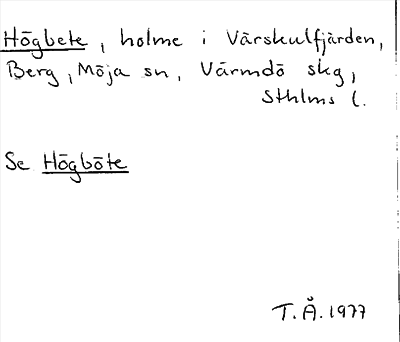 Högbete, holme i Värskulfjärden,
Berg, Möja sn, Värmdö skg,
Sthlms l.
Se Högböte
T.Å. 1977